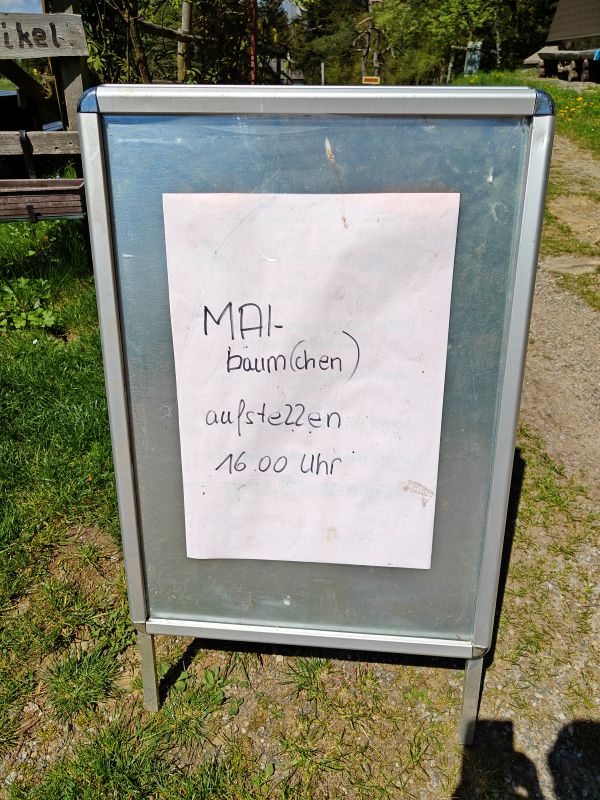 ikel
MAI-
baum(chen)
aufstellen
16.00 Uhr